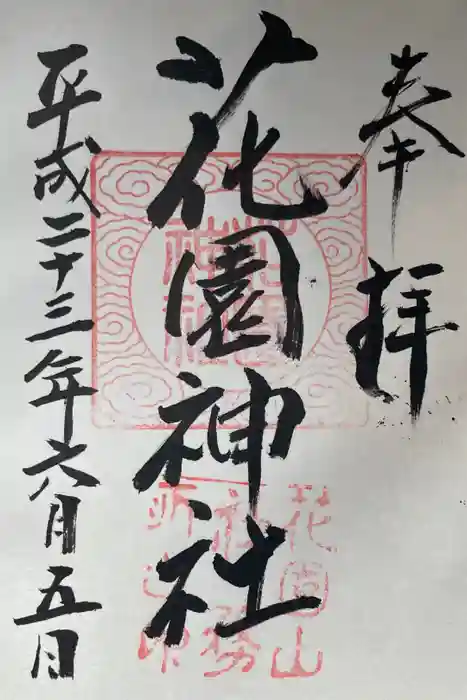 奉拝
花園神社
平成二十三年六月五日
花園
神社
花園山
社務
所之印